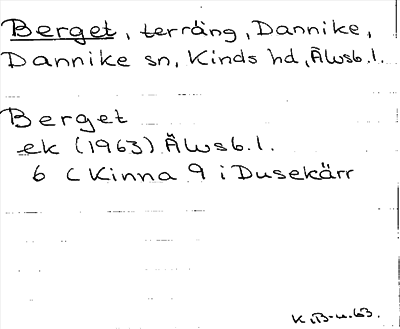 Berget, terräng, Dannike,
Dannike sn, Kinds hd, Älvsb. l.
Berget
ek (1963) Älvsb. l.
6 C Kinna 9 i Dusekärr